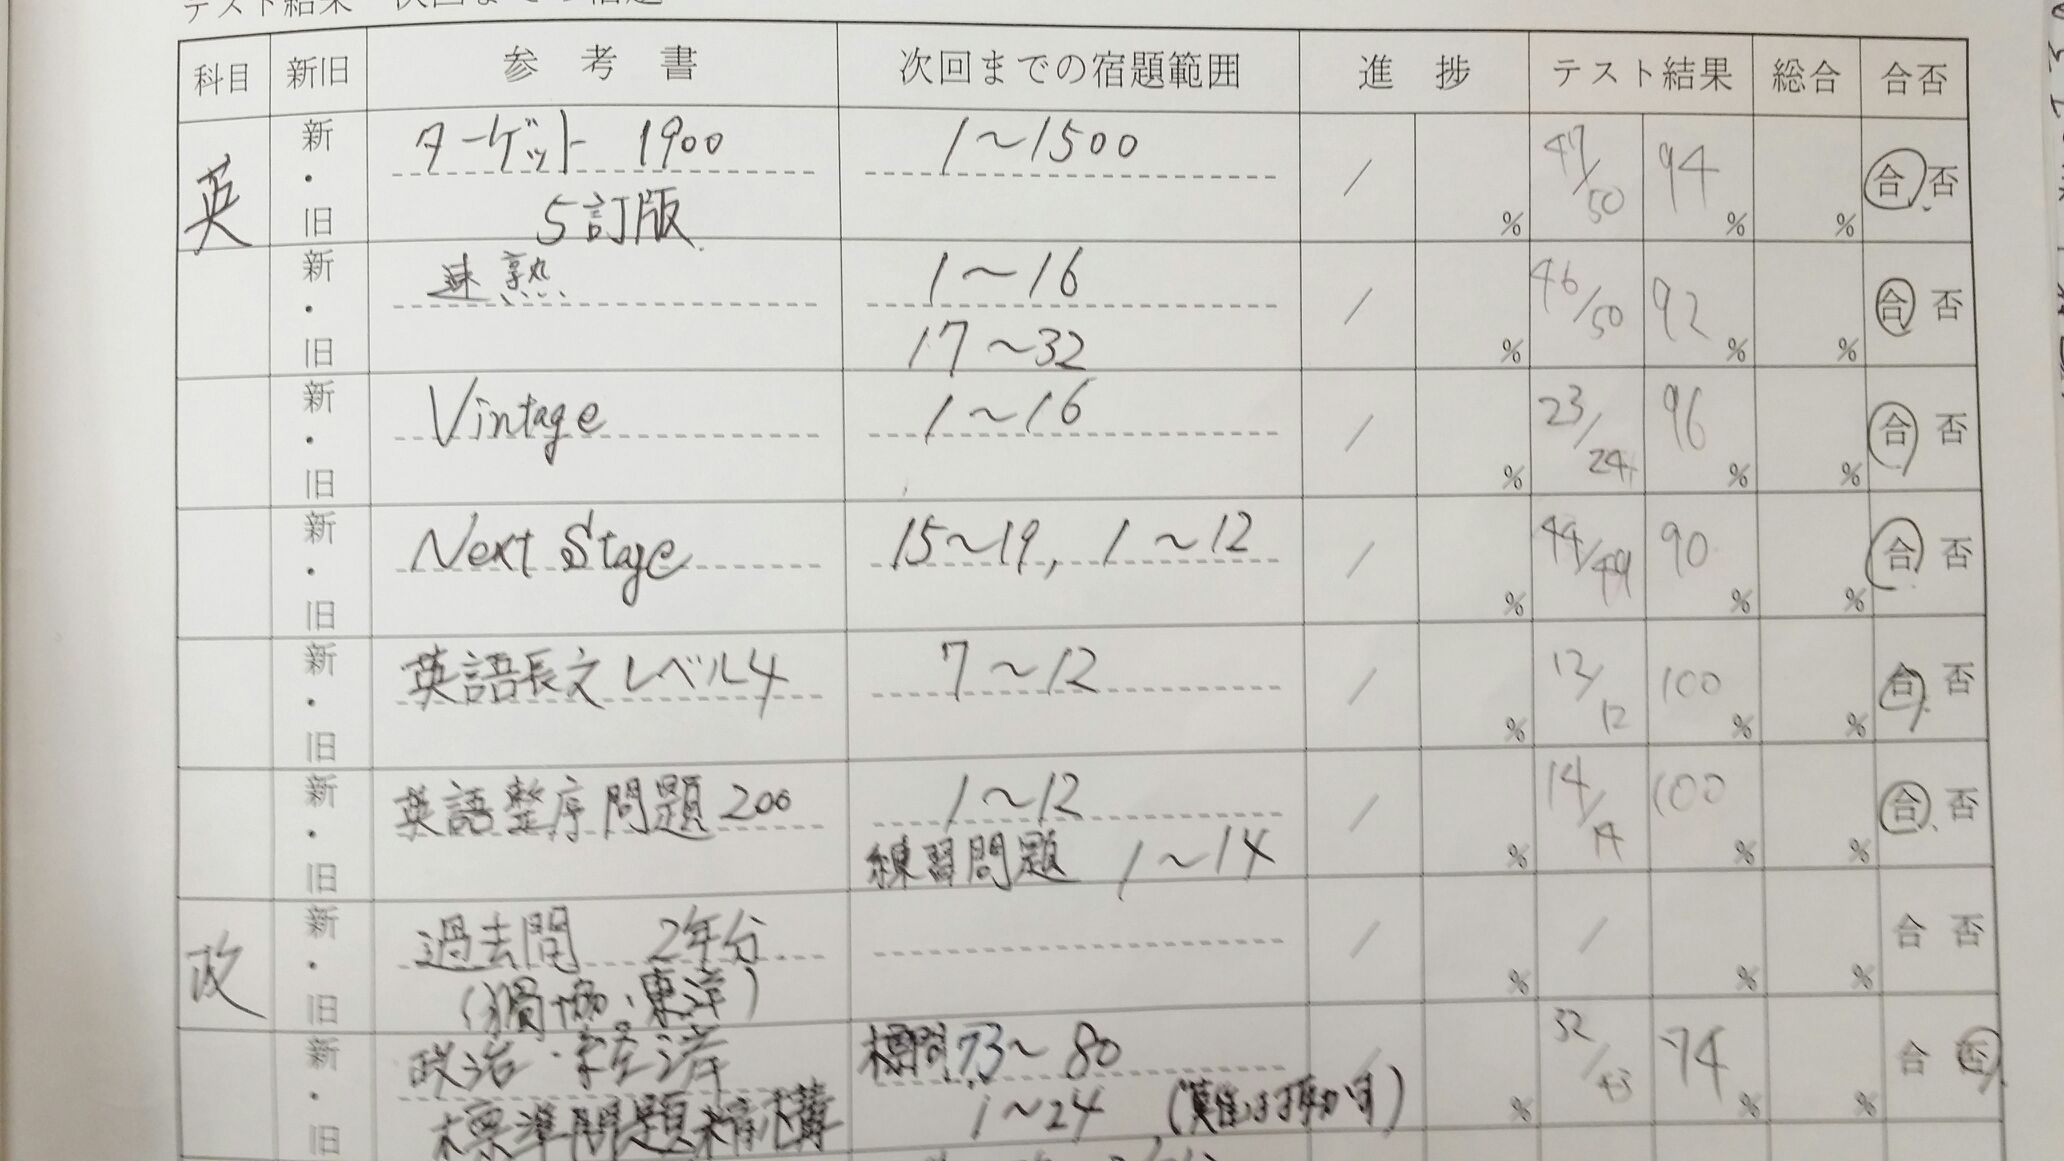 テスト結果 次回までの宿題
科目 新旧 参考書 次回までの宿題範囲 進捗 テスト結果 総合 合否
英 新・旧 ターゲット 1900 1～1500 / % 47/50 94% % 合 否
5訂版
新・旧 速熟 1～16 / % 46/50 92% % 合 否
17～32
新・旧 Vintage 1～16 / % 23/24 96% % 合 否
新・旧 Next Stage 15～19, 1～12 / % 44/49 90% % 合 否
新・旧 英語長文レベル4 7～12 / % 12/12 100% % 合 否
新・旧 英語整序問題200 1～12 / % 14/14 100% % 合 否
練習問題 1～14
政 新・旧 過去問 2年分 / % / % % 合 否
(獨協・東洋)
新・旧 政治・経済 標問 73～80 / % 32/43 74% % 合 否
標準問題精講 1～24